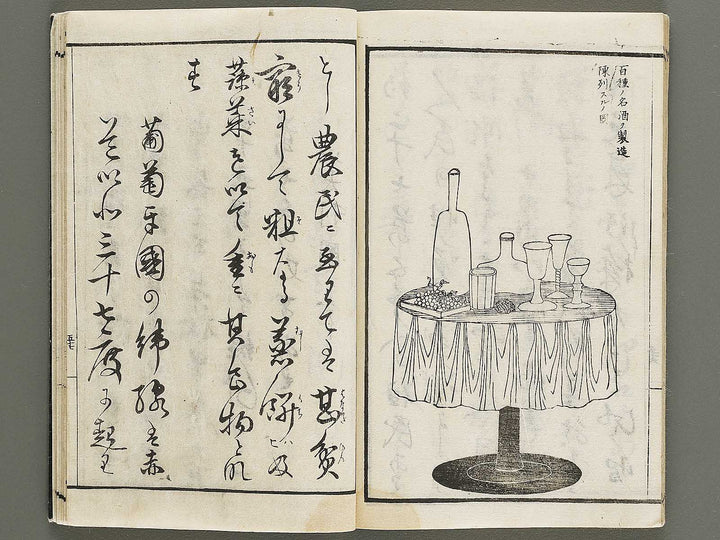 百種ノ名酒ヲ製造
陳列スルノ図
とし農民に至りては甚貧
窮にして粗大なる蒸餅及
蔬菜を以て重に其食物と為
す
葡萄牙国の緯線は赤
道以北三十七度に起り
五十七